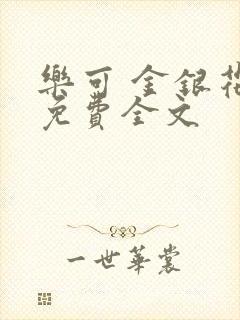 樂可 金銀花
免費全文
一世華裳